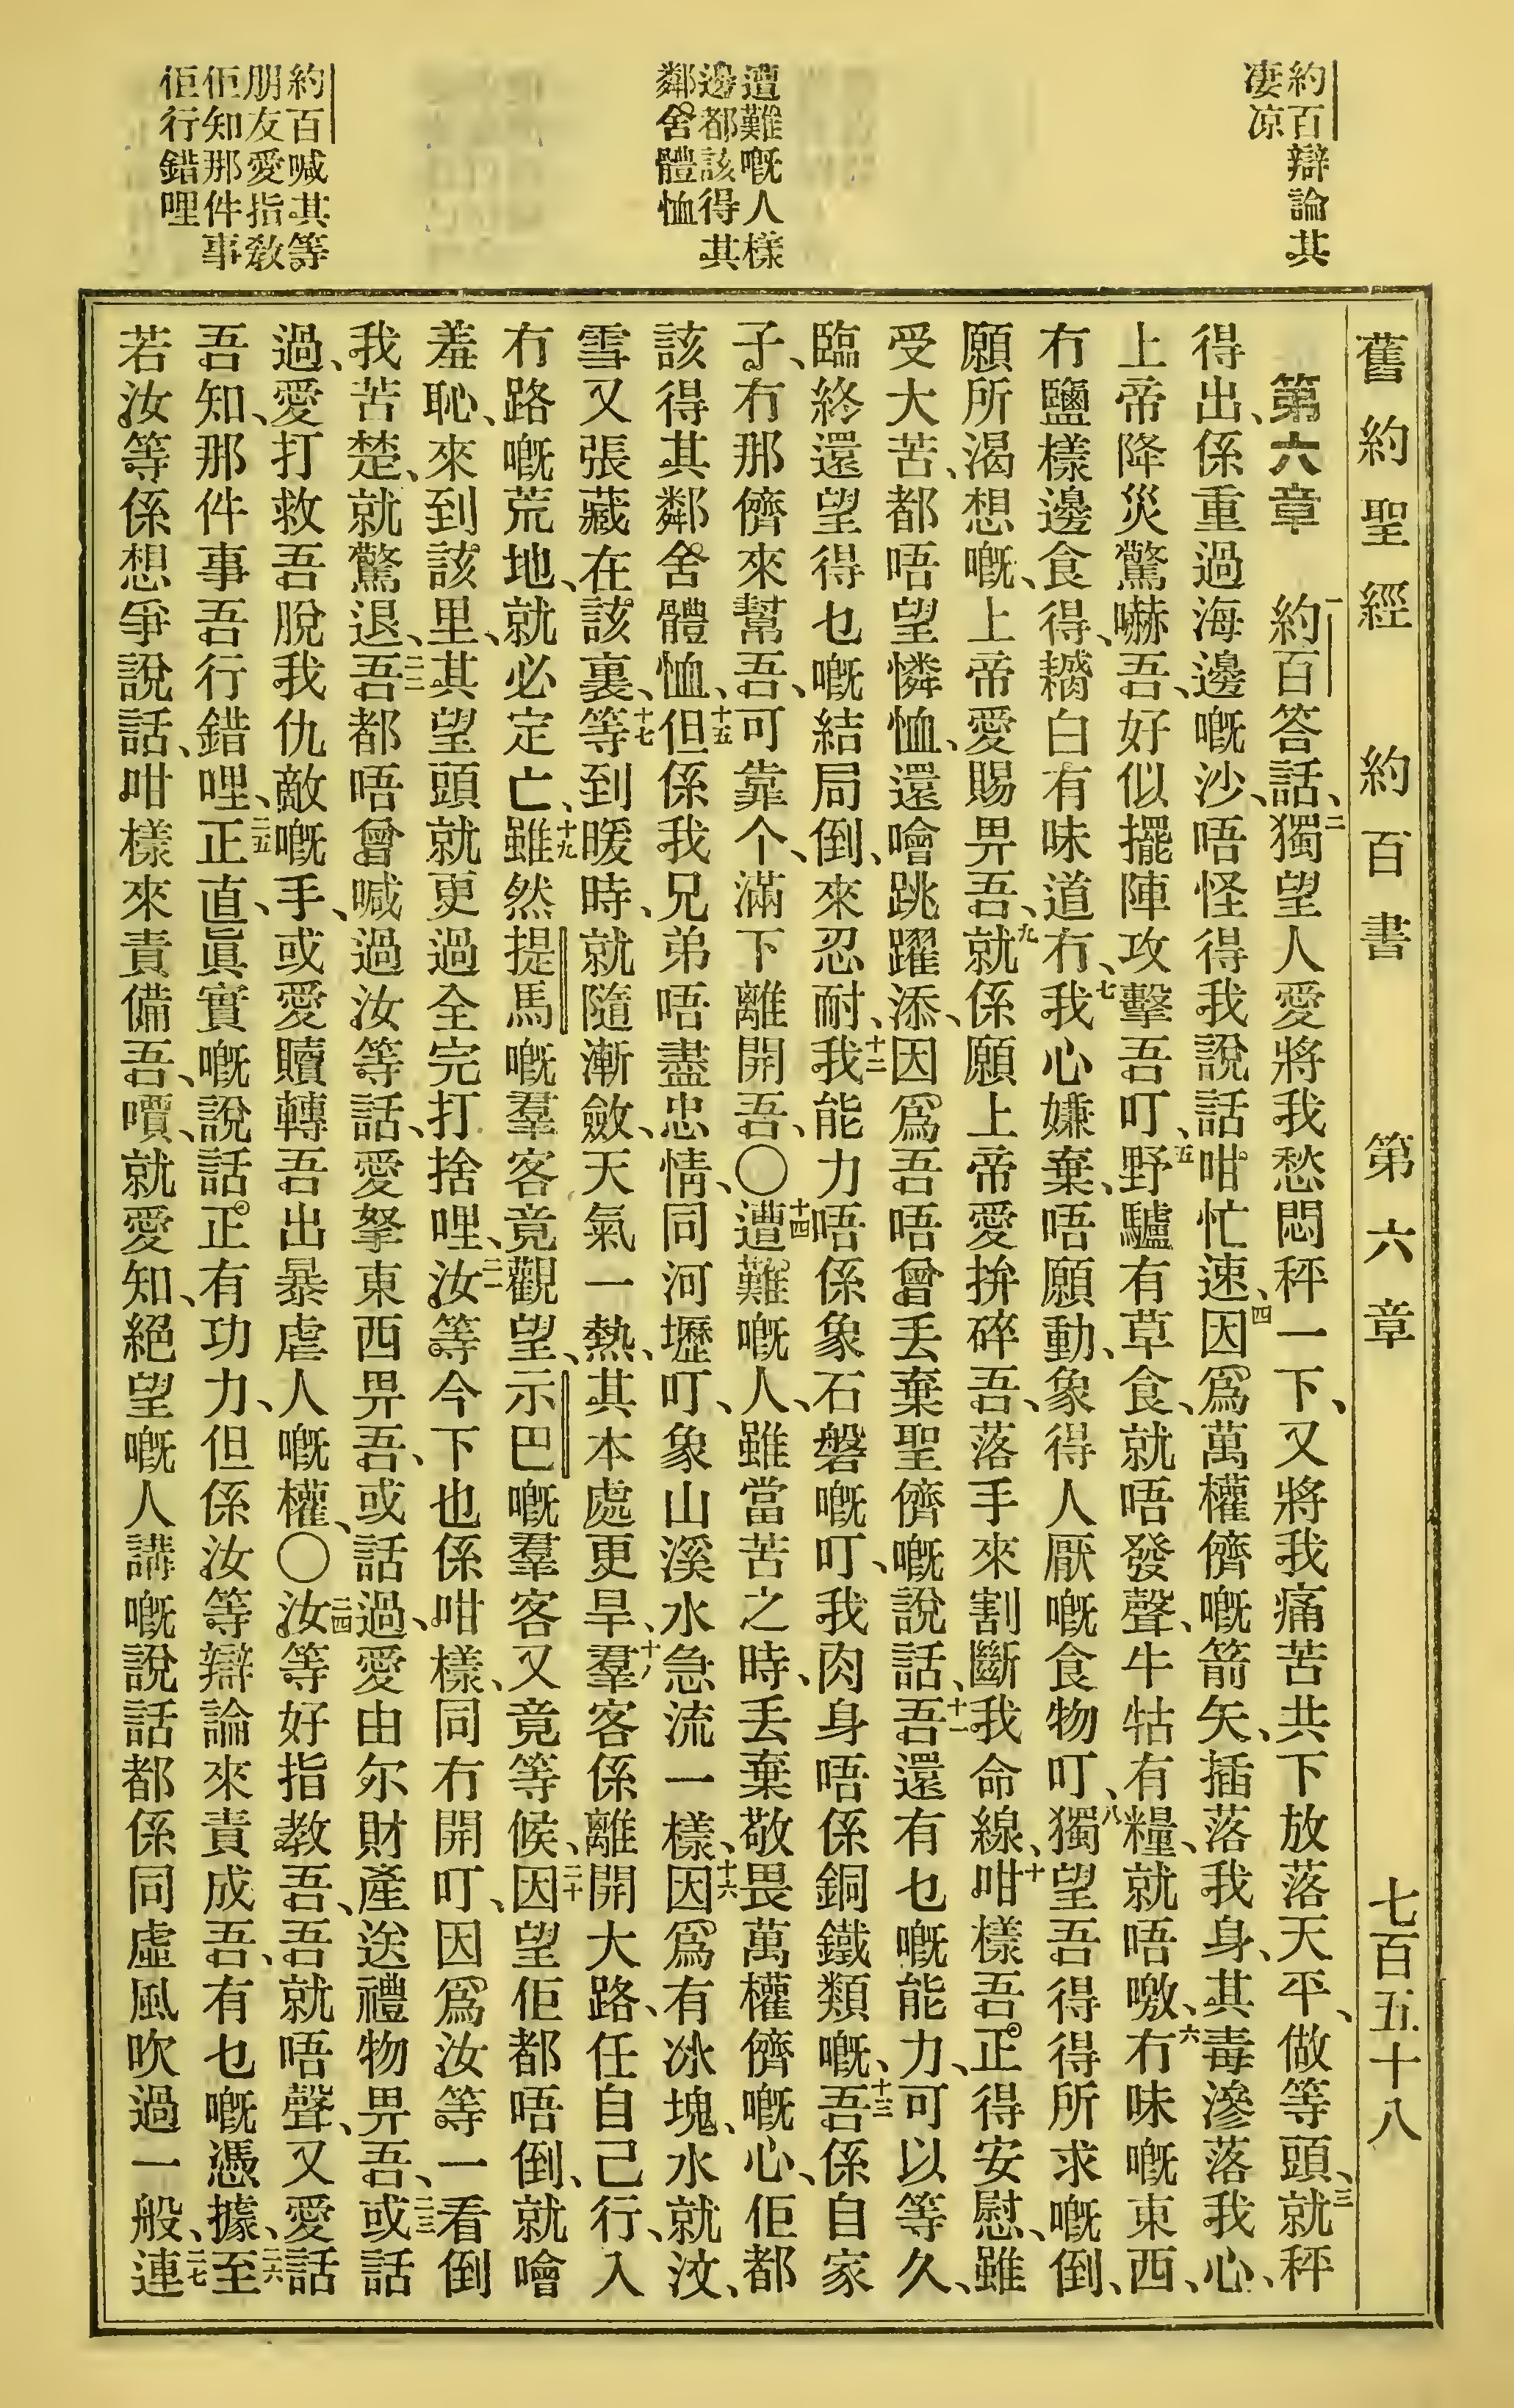 約百辯論其
凄凉
遭難嘅人樣
邊都該得其
鄰舍體恤
約百喊其等
朋友愛指敎
佢知那件事
佢行錯哩
舊約聖經　約百書　第六章　七百五十八
第六章　一約百答話、二獨望人愛將我愁悶秤一下、又將我痛苦共下放落天平、做等頭、三就秤
得出、係重過海邊嘅沙、唔怪得我說話咁忙速、四因爲萬權儕嘅箭矢、插落我身、其毒滲落我心、
上帝降災驚嚇吾、好似擺陣攻擊吾叮、五野驢有草食、就唔發聲、牛牯有糧、就唔噭、六冇味嘅東西、
冇鹽樣邊食得、𪍑白有味道冇、七我心嫌棄、唔願動、象得人厭嘅食物叮、八獨望吾得得所求嘅倒、
願所渴想嘅、上帝愛賜畀吾、九就係願上帝愛拚碎吾、落手來割斷我命線、十咁樣吾正得安慰、雖
受大苦、都唔望憐恤、還噲跳躍添、因爲吾唔曾丢棄聖儕嘅說話、十一吾還有乜嘅能力、可以等久、
臨終還望得乜嘅結局倒、來忍耐、十二我能力唔係象石磐嘅叮、我肉身唔係銅鐵類嘅、十三吾係自家
子、冇那儕來幫吾、可靠个、滿下離開吾、〇十四遭難嘅人、雖當苦之時、丢棄敬畏萬權儕嘅心、佢都
該得其鄰舍體恤、十五但係我兄弟唔盡忠情、同河壢叮、象山溪水急流一樣、十六因爲有冰塊、水就汶、
雪又張藏在該裏、十七等到暖時、就隨漸斂、天氣一熱、其本處更旱、十八羣客係離開大路、任自己行、入
冇路嘅荒地、就必定亡、十九雖然提馬嘅羣客竟觀望、示巴嘅羣客又竟等候、二十因望佢都唔倒、就噲
羞恥、來到該里、其望頭就更過全完打捨哩、二一汝等今下也係咁樣、同冇開叮、因爲汝等一看倒
我苦楚、就驚退、二二吾都唔曾喊過汝等話、愛拏東西畀吾、或話過、愛由尔財產送禮物畀吾、二三或話
過、愛打救吾脫我仇敵嘅手、或愛贖轉吾出暴虐人嘅權、〇二四汝等好指教吾、吾就唔聲、又愛話
吾知、那件事吾行錯哩、二五正直、眞實嘅說話正有功力、但係汝等辯論來責成吾、有乜嘅憑據、二六至
若汝等係想爭說話、咁樣來責備吾、嘪、就愛知、絕望嘅人講嘅說話都係同虛風吹過一般、二七連